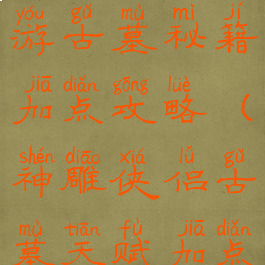 yóu gǔ mù mì jí
游古墓秘籍
jiā diǎn gōng lüè
加点攻略（
shén diāo xiá lǚ gǔ
神雕侠侣古
mù tiān fù jiā diǎn
墓天赋加点